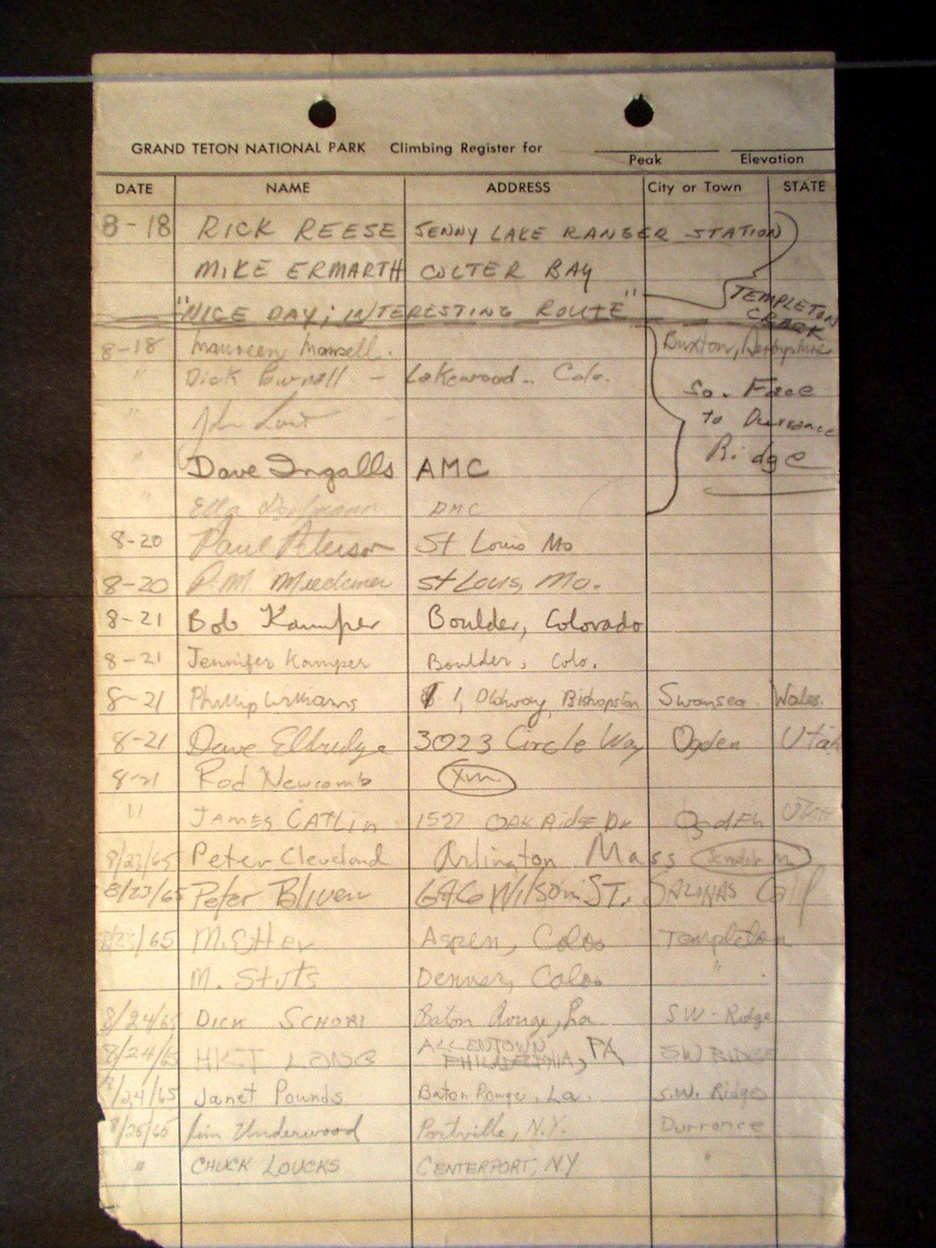 GRAND TETON NATIONAL PARK Climbing Register for
Peak Elevation
DATE NAME ADDRESS City or Town STATE
8-18 RICK REESE JENNY LAKE RANGER STATION
MIKE ERMARTH COLTER BAY
"NICE DAY; INTERESTING ROUTE" TEMPLETON
CRACK
8-18 Maureen Mansell. Buxton, Derbyshire
" Dick - Lakewood - Colo.
So. Face
" John - to Durrance
" Dave Ingalls AMC Ridge
" Ella DMC
8-20 Paul Peterson St Louis Mo
8-20 P.M. St Louis, Mo.
8-21 Bob Kamper Boulder, Colorado
8-21 Jennifer Kamper Boulder, Colo.
8-21 Phillip Williams 1, Oldway, Bishopston Swansea Wales.
8-21 Dave Eldredge 3023 Circle Way Ogden Utah
8-21 Rod Newcomb
11 JAMES CATLIN 1527 OAK RidgE Dr OgdEn UTAH
8/23/65 Peter Cleveland Arlington Mass
8/23/65 Peter Bliven 646 Wilson ST. SALINAS Calif
/65 M. Etter Aspen, Colo. Templeton
M. Stuts Denver, Colo. "
8/24/65 DICK SCHORI Baton Rouge, La SW-Ridge
8/24/65 LONG ALLENTOWN PHILADELPHIA, PA SW RIDGE
8/24/65 Janet Pounds Baton Rouge, La. S.W. Ridge
8/25/65 Jim Underwood Portville, N.Y. Durrance
" CHUCK LOUCKS CENTERPORT, NY "